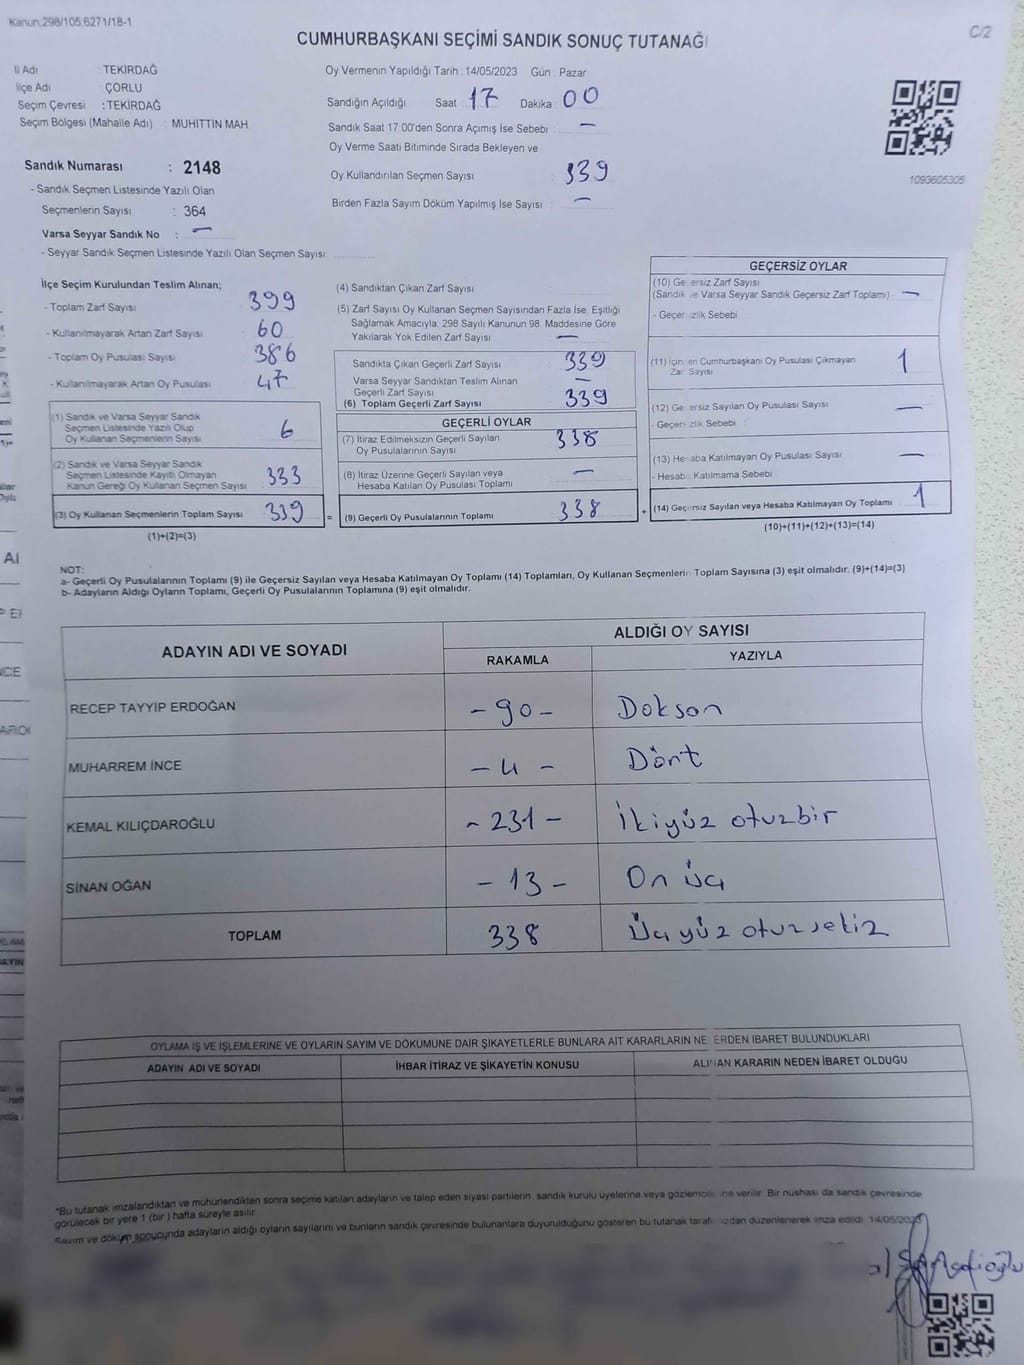 Kanun.298/105.6271/18-1
C/2
CUMHURBAŞKANI SEÇİMİ SANDIK SONUÇ TUTANAĞI
İl Adı : TEKİRDAĞ
İlçe Adı : ÇORLU
Seçim Çevresi : TEKİRDAĞ
Seçim Bölgesi (Mahalle Adı) : MUHİTTİN MAH.
Sandık Numarası : 2148
- Sandık Seçmen Listesinde Yazılı Olan
Seçmenlerin Sayısı : 364
Varsa Seyyar Sandık No : –
- Seyyar Sandık Seçmen Listesinde Yazılı Olan Seçmen Sayısı:
Oy Vermenin Yapıldığı Tarih : 14/05/2023 Gün : Pazar
Sandığın Açıldığı Saat 17 Dakika 00
Sandık Saat 17:00'den Sonra Açımış İse Sebebi : –
Oy Verme Saati Bitiminde Sırada Bekleyen ve
Oy Kullandırılan Seçmen Sayısı : 339
Birden Fazla Sayım Döküm Yapılmış İse Sayısı : –
1093605305
İlçe Seçim Kurulundan Teslim Alınan;
- Toplam Zarf Sayısı 399
- Kullanılmayarak Artan Zarf Sayısı 60
- Toplam Oy Pusulası Sayısı 386
- Kullanılmayarak Artan Oy Pusulası 47
(1) Sandık ve Varsa Seyyar Sandık
Seçmen Listesinde Yazılı Olup
Oy Kullanan Seçmenlerin Sayısı 6
(2) Sandık ve Varsa Seyyar Sandık
Seçmen Listesinde Kayıtlı Olmayan
Kanun Gereği Oy Kullanan Seçmen Sayısı 333
(3) Oy Kullanan Seçmenlerin Toplam Sayısı 339
(1)+(2)=(3)
(4) Sandıktan Çıkan Zarf Sayısı
(5) Zarf Sayısı Oy Kullanan Seçmen Sayısından Fazla İse, Eşitliği
Sağlamak Amacıyla, 298 Sayılı Kanunun 98. Maddesine Göre
Yakılarak Yok Edilen Zarf Sayısı –
Sandıkta Çıkan Geçerli Zarf Sayısı 339
Varsa Seyyar Sandıktan Teslim Alınan
Geçerli Zarf Sayısı –
(6) Toplam Geçerli Zarf Sayısı 339
GEÇERLİ OYLAR
(7) İtiraz Edilmeksizin Geçerli Sayılan
Oy Pusulalarının Sayısı 338
(8) İtiraz Üzerine Geçerli Sayılan veya
Hesaba Katılan Oy Pusulası Toplamı –
= (9) Geçerli Oy Pusulalarının Toplamı 338
GEÇERSİZ OYLAR
(10) Ge ersiz Zarf Sayısı
(Sandık ve Varsa Seyyar Sandık Geçersiz Zarf Toplamı) : –
- Geçer izlik Sebebi :
(11) İçin en Cumhurbaşkanı Oy Pusulası Çıkmayan
Zar Sayısı 1
(12) Ge ersiz Sayılan Oy Pusulası Sayısı –
- Geçer zlik Sebebi :
(13) He aba Katılmayan Oy Pusulası Sayısı –
- Hesab Katılmama Sebebi :
+ (14) Geçersiz Sayılan veya Hesaba Katılmayan Oy Toplamı 1
(10)+(11)+(12)+(13)=(14)
NOT:
a- Geçerli Oy Pusulalarının Toplamı (9) ile Geçersiz Sayılan veya Hesaba Katılmayan Oy Toplamı (14) Toplamları, Oy Kullanan Seçmenleri Toplam Sayısına (3) eşit olmalıdır. (9)+(14)=(3)
b- Adayların Aldığı Oyların Toplamı, Geçerli Oy Pusulalarının Toplamına (9) eşit olmalıdır.
ADAYIN ADI VE SOYADI
ALDIĞI OY SAYISI
RAKAMLA YAZIYLA
RECEP TAYYİP ERDOĞAN -90- Doksan
MUHARREM İNCE -4- Dört
KEMAL KILIÇDAROĞLU -231- İkiyüz otuzbir
SİNAN OĞAN -13- On üç
TOPLAM 338 Üçyüz otuzsekiz
OYLAMA İŞ VE İŞLEMLERİNE VE OYLARIN SAYIM VE DÖKÜMÜNE DAİR ŞİKAYETLERLE BUNLARA AİT KARARLARIN NE ERDEN İBARET BULUNDUKLARI
ADAYIN ADI VE SOYADI İHBAR İTİRAZ VE ŞİKAYETİN KONUSU ALINAN KARARIN NEDEN İBARET OLDUĞU
*Bu tutanak imzalandıktan ve mühürlendikten sonra seçime katılan adayların ve talep eden siyasi partilerin sandık kurulu üyelerine veya gözlemcile ine verilir. Bir nüshası da sandık çevresinde
görülecek bir yere 1 (bir) hafta süreyle asılır.
Sayım ve döküm sonucunda adayların aldığı oyların sayılarını ve bunların sandık çevresinde bulunanlara duyurulduğunu gösteren bu tutanak taraf ızdan düzenlenerek imza edildi. 14/05/2023